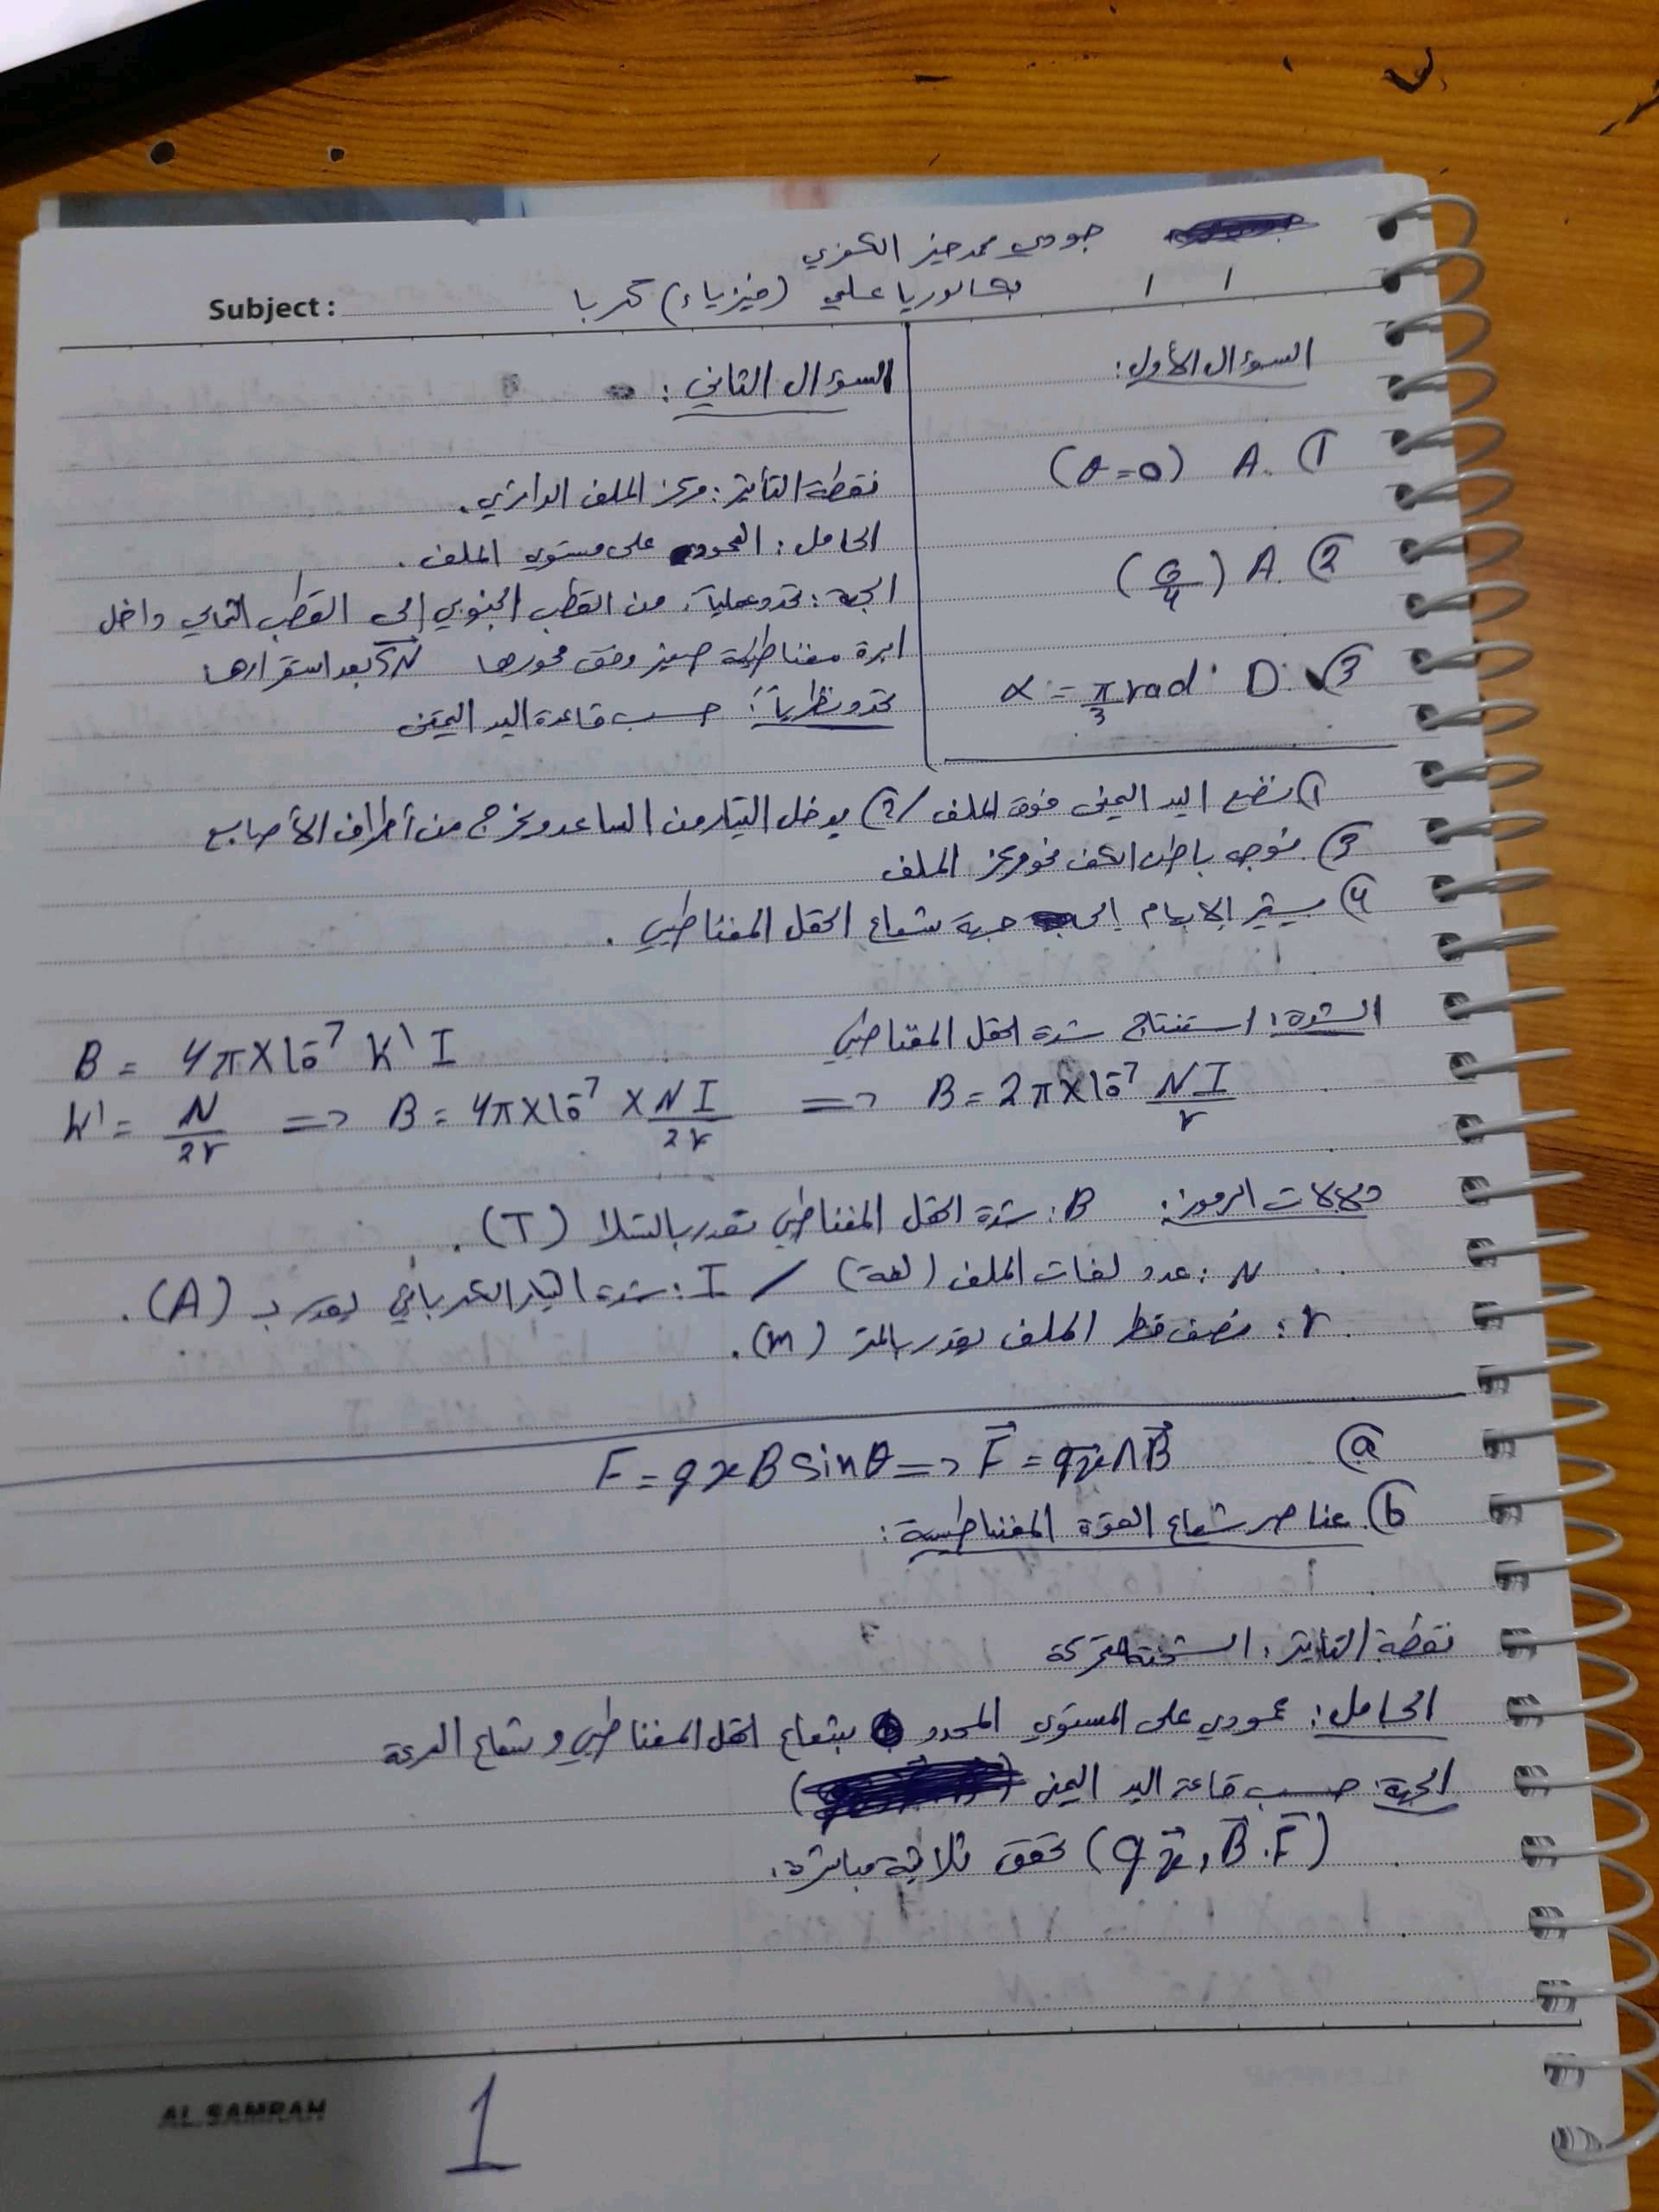 جودي محمد خير الكفري
بكالوريا علمي (فيزياء) كهربا
Subject :
/ /
السؤال الأول:
① A. (θ=0)
② A. (G/4)
③ D. α = π/3 rad
السؤال الثاني:
نقطة التأثير: مركز الملف الدائري.
الحامل: العمودي على مستوي الملف.
الجهة: تحدد عملياً: من القطب الجنوبي إلى القطب الشمالي داخل
ابرة مغناطيسية صغيرة وفق محورها بعد استقرارها
تحدد نظرياً: حسب قاعدة اليد اليمنى
① نضع اليد اليمنى فوق الملف / ② يدخل التيار من الساعد ويخرج من أطراف الأصابع
③ نوجه باطن الكف نحو مركز الملف
④ يشير الابهام إلى جهة شعاع الحقل المغناطيسي.
الشدة: استنتاج شدة الحقل المغناطيسي
B = 4π×10⁻⁷ K' I
K' = N/2r => B = 4π×10⁻⁷ × NI/2r => B = 2π×10⁻⁷ NI/r
دلالات الرموز: B: شدة الحقل المغناطيسي تقدر بالتسلا (T).
N: عدد لفات الملف (لفة) / I: شدة التيار الكهربائي يقدر بـ (A).
r: نصف قطر الملف يقدر بالمتر (m).
ⓐ F = qvB sinθ => F⃗ = qv⃗ ∧ B⃗
ⓑ عناصر شعاع القوة المغناطيسية:
نقطة التأثير: الشحنة المتحركة
الحامل: عمودي على المستوي المحدد بشعاع الحقل المغناطيسي وشعاع السرعة
الجهة: حسب قاعدة اليد اليمنى
(qv⃗, B⃗, F⃗) تحقق ثلاثية مباشرة.
AL.SAMRAH
1